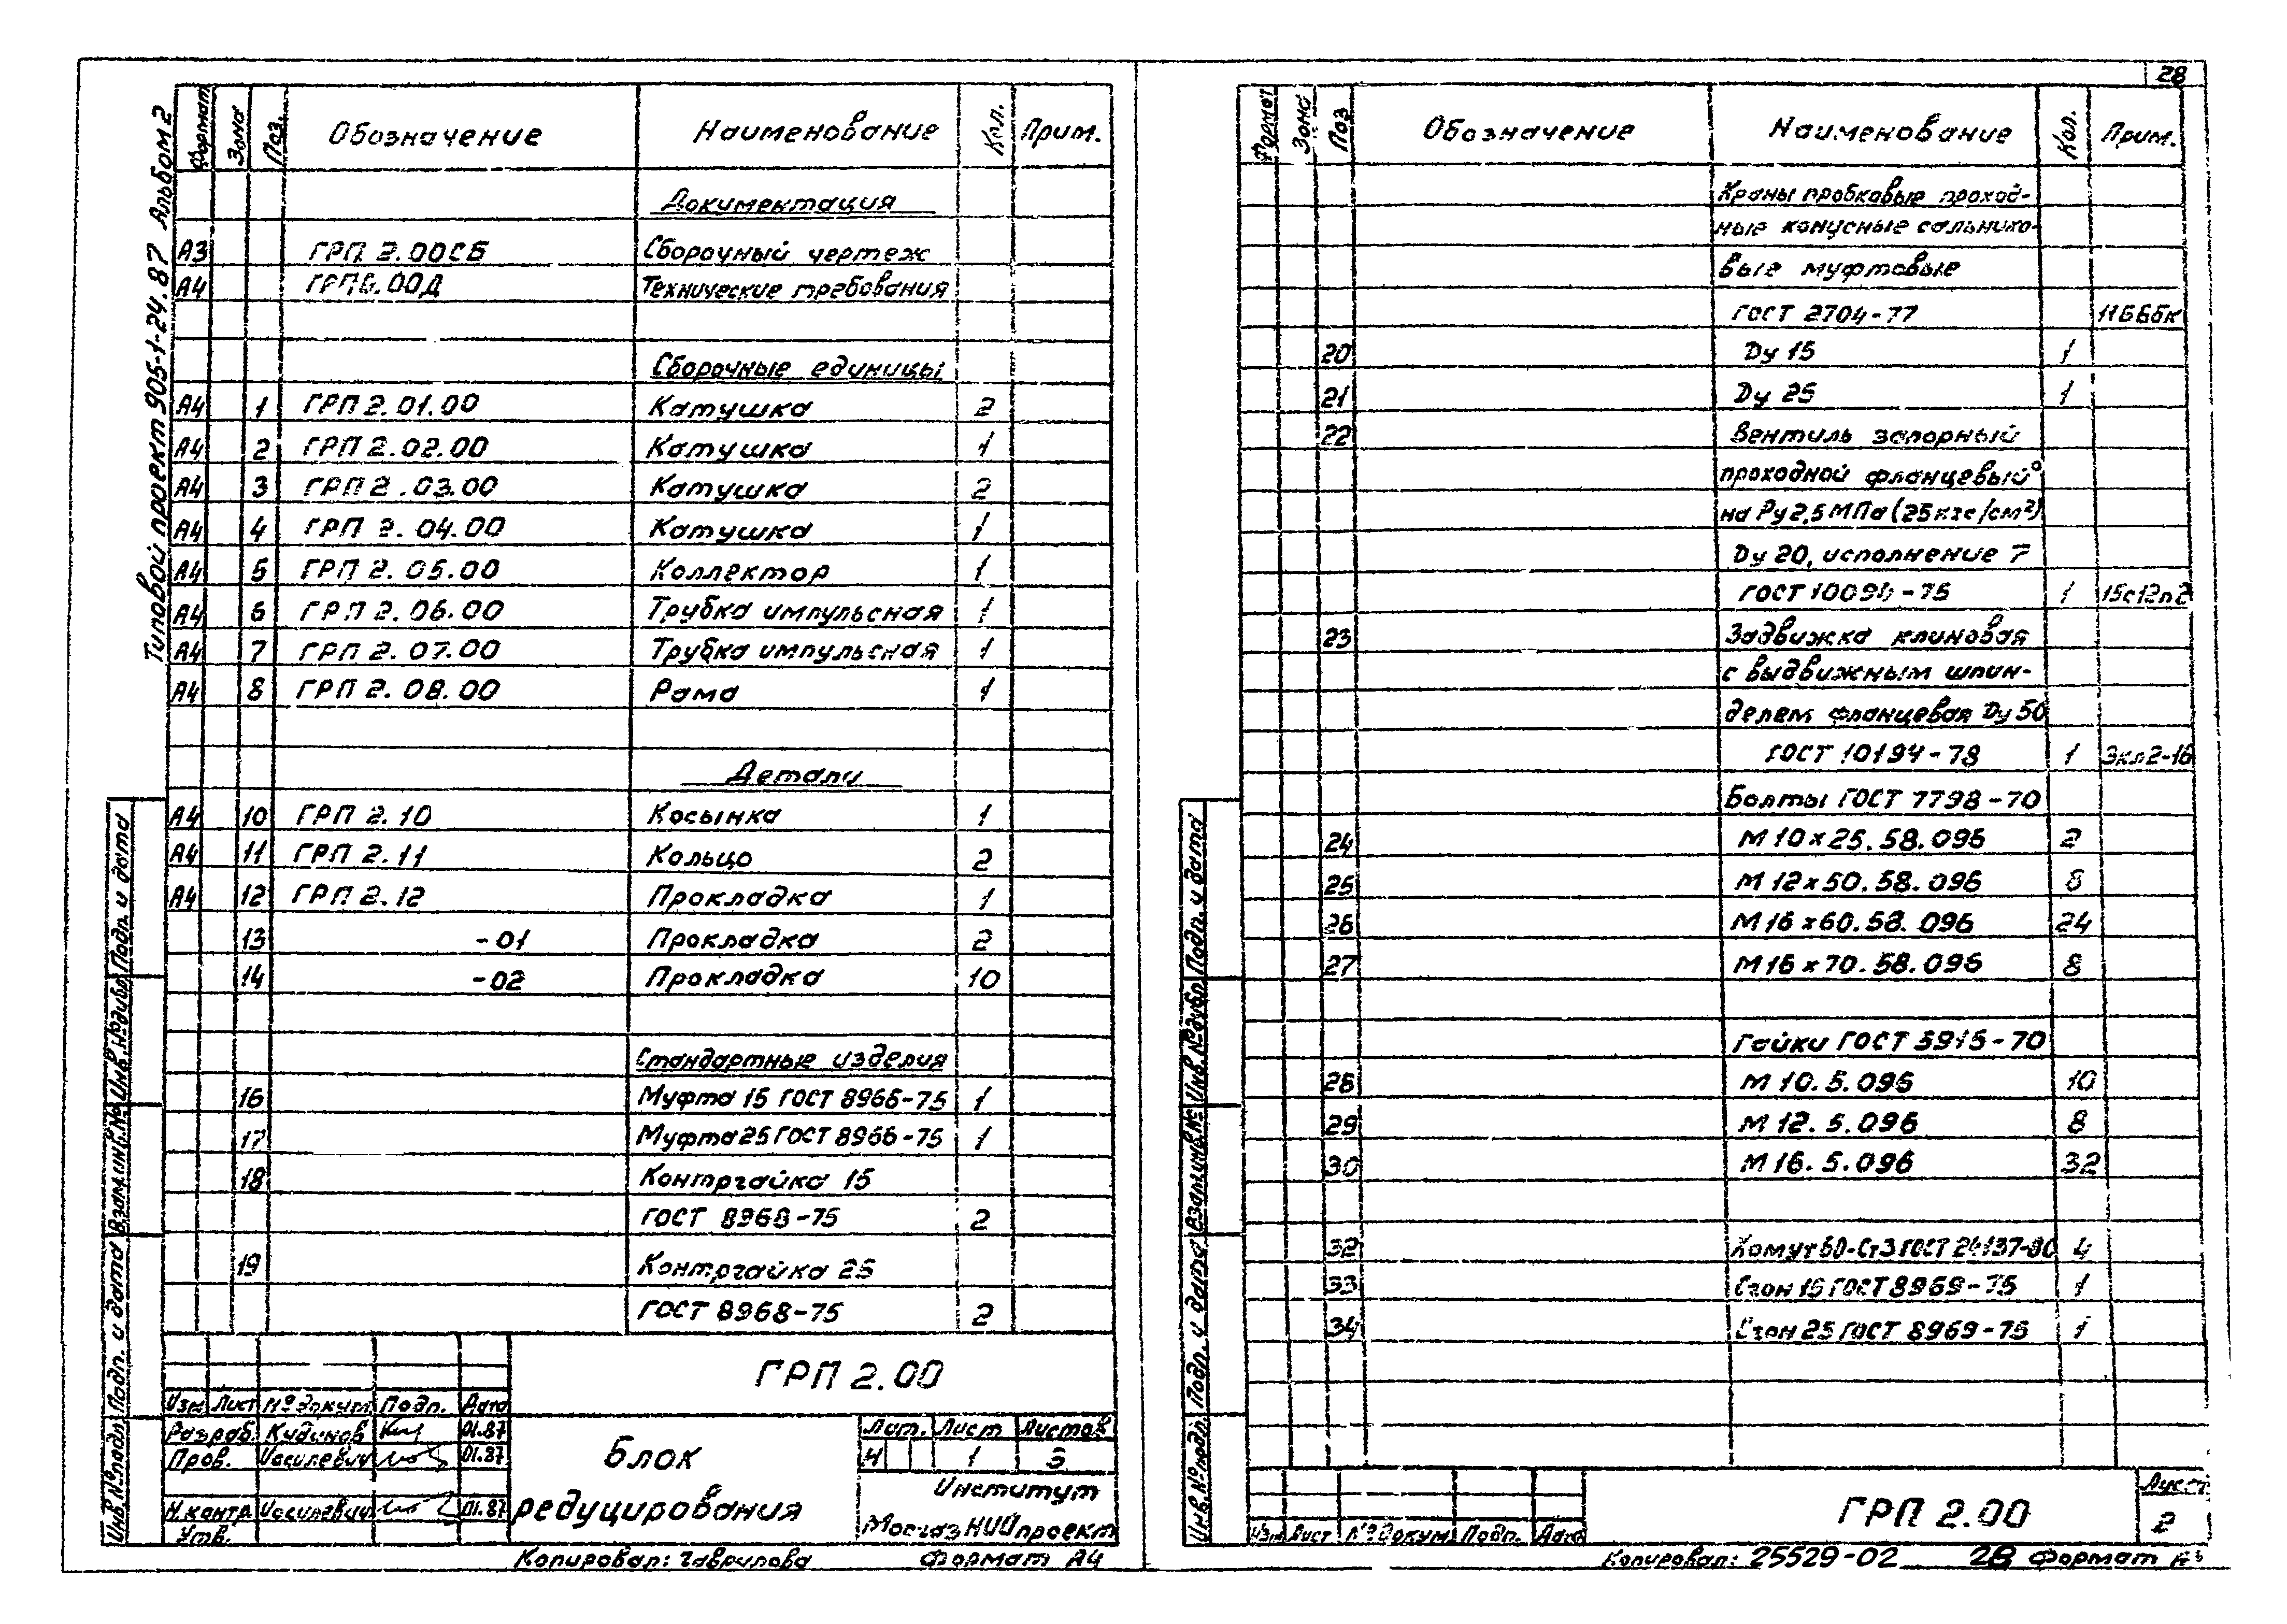 28
Типовой проект 905-1-24.87 Альбом 2
Формат Зона Поз. Обозначение Наименование Кол. Прим.
Документация
А3 ГРП 2.00СБ Сборочный чертеж
А4 ГРП6.00Д Технические требования
Сборочные единицы
А4 1 ГРП 2.01.00 Катушка 2
А4 2 ГРП 2.02.00 Катушка 1
А4 3 ГРП 2.03.00 Катушка 2
А4 4 ГРП 2.04.00 Катушка 1
А4 5 ГРП 2.05.00 Коллектор 1
А4 6 ГРП 2.06.00 Трубка импульсная 1
А4 7 ГРП 2.07.00 Трубка импульсная 1
А4 8 ГРП 2.08.00 Рама 1
Детали
А4 10 ГРП 2.10 Косынка 1
А4 11 ГРП 2.11 Кольцо 2
А4 12 ГРП 2.12 Прокладка 1
13 -01 Прокладка 2
14 -02 Прокладка 10
Стандартные изделия
16 Муфта 15 ГОСТ 8966-75 1
17 Муфта 25 ГОСТ 8966-75 1
18 Контргайка 15
ГОСТ 8968-75 2
19 Контргайка 25
ГОСТ 8968-75 2
Инв.№подл. Подп. и дата Взам.инв.№ Инв.№дубл. Подп. и дата
ГРП 2.00
Изм Лист №докум Подп. Дата
Разраб. Кудинов 01.87
Пров. Иосилевич 01.87
Н.контр. Иосилевич 01.87
Утв.
Блок
редуцирования
Лит. Лист Листов
И 1 3
Институт
МосгазНИИпроект
Копировал: Гаврилова Формат А4
Формат Зона Поз Обозначение Наименование Кол. Прим.
Краны пробковые проход-
ные конусные сальнико-
вые муфтовые
ГОСТ 2704-77 11Б6бк
20 Ду 15 1
21 Ду 25 1
22 Вентиль запорный
проходной фланцевый
на Ру2,5МПа (25кгс/см²)
Ду 20, исполнение 7
ГОСТ -75 1
23 Задвижка клиновая
с выдвижным шпин-
делем фланцевая Ду 50
ГОСТ 10194-78 1 Экл2-16
Болты ГОСТ 7798-70
24 М 10х25.58.096 2
25 М 12х50.58.096 8
26 М 16х60.58.096 24
27 М16х70.58.096 8
Гайки ГОСТ 5915-70
28 М 10.5.096 10
29 М 12.5.096 8
30 М 16.5.096 32
32 Хомут 60-Ст3 ГОСТ 24137-80 4
33 Сгон 15 ГОСТ 8969-75 1
34 Сгон 25 ГОСТ 8969-75 1
Инв.№подл. Подп. и дата Взам.инв.№ Инв.№дубл. Подп. и дата
Изм Лист №докум Подп. Дата
ГРП 2.00
Лист
2
Копировал: 25529-02 28 Формат